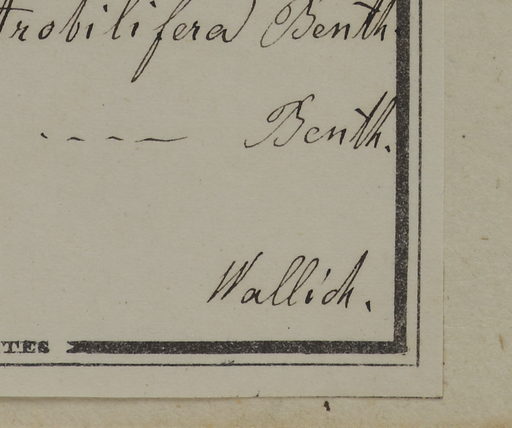 trobilifera Benth.
---- Benth.
Wallich.
TES